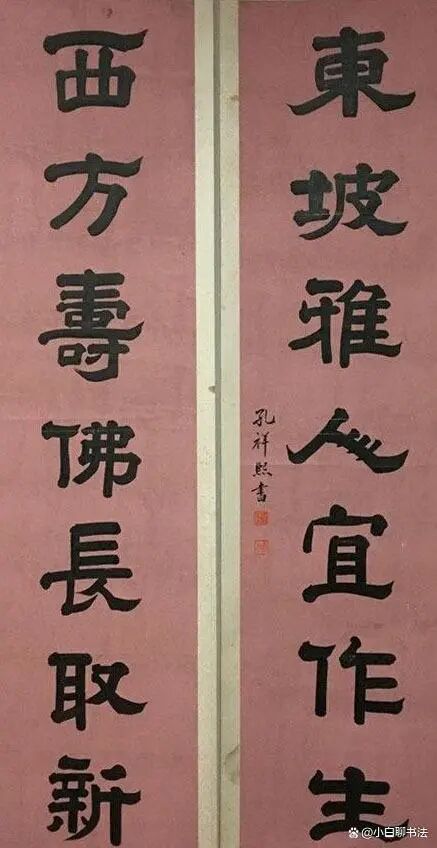 東坡雅人宜作生
孔祥熙書
西方壽佛長取新
@小白聊书法